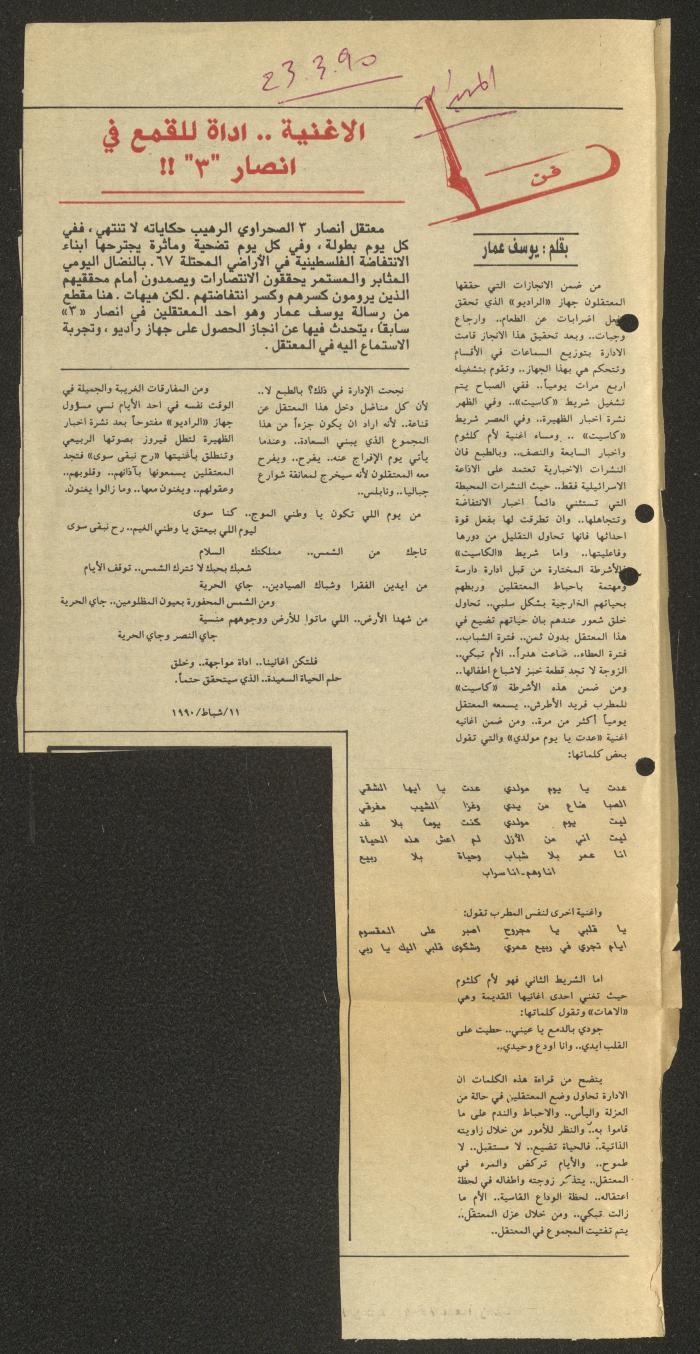 23.3.90
الاغنية .. اداة للقمع في
انصار "٣" !!
فن
معتقل أنصار ٣ الصحراوي الرهيب حكاياته لا تنتهي ، ففي
كل يوم بطولة ، وفي كل يوم تضحية ومأثرة يجترحها ابناء
الانتفاضة الفلسطينية في الأراضي المحتلة ٦٧ . بالنضال اليومي
المثابر والمستمر يحققون الانتصارات ويصمدون أمام محققيهم
الذين يرومون كسرهم وكسر انتفاضتهم . لكن هيهات . هنا مقطع
من رسالة يوسف عمار وهو احد المعتقلين في انصار «٣»
سابقا ، يتحدث فيها عن انجاز الحصول على جهاز راديو ، وتجربة
الاستماع اليه في المعتقل .
بقلم : يوسف عمار
من ضمن الانجازات التي حققها
المعتقلون جهاز «الراديو» الذي تحقق
بفعل اضرابات عن الطعام.. وارجاع
وجبات.. وبعد تحقيق هذا الانجاز قامت
الادارة بتوزيع السماعات في الأقسام
وتتحكم هي بهذا الجهاز.. وتقوم بتشغيله
اربع مرات يومياً.. ففي الصباح يتم
تشغيل شريط «كاسيت».. وفي الظهر
نشرة اخبار الظهيرة.. وفي العصر شريط
«كاسيت» .. ومساء اغنية لأم كلثوم
واخبار السابعة والنصف.. وبالطبع فان
النشرات الاخبارية تعتمد على الاذاعة
الاسرائيلية فقط.. حيث النشرات المحبطة
التي تستثني دائماً اخبار الانتفاضة
وتتجاهلها.. وان تطرقت لها بفعل قوة
احداثها فانها تحاول التقليل من دورها
وفاعليتها.. واما شريط «الكاسيت»
فالأشرطة المختارة من قبل ادارة دارسة
ومهتمة باحباط المعتقلين وربطهم
بحياتهم الخارجية بشكل سلبي.. تحاول
خلق شعور عندهم بان حياتهم تضيع في
هذا المعتقل بدون ثمن.. فترة الشباب..
فترة العطاء.. ضاعت هدراً.. الأم تبكي..
الزوجة لا تجد قطعة خبز لاشباع اطفالها..
ومن ضمن هذه الأشرطة «كاسيت»
للمطرب فريد الأطرش.. يسمعه المعتقل
يومياً أكثر من مرة.. ومن ضمن اغانيه
اغنية «عدت يا يوم مولدي» والتي تقول
بعض كلماتها:
عدت يا يوم مولدي عدت يا ايها الشقي
الصبا ضاع من يدي وغزا الشيب مفرقي
ليت يوم مولدي كنت يوما بلا غد
ليت اني من الأزل لم اعش هذه الحياة
انا عمر بلا شباب وحياة بلا ربيع
انا وهم ـ انا سراب
واغنية اخرى لنفس المطرب تقول:
يا قلبي يا مجروح اصبر على المقسوم
ايام تجري في ربيع عمري وشكوى قلبي اليك يا ربي
اما الشريط الثاني فهو لأم كلثوم
حيث تغني احدى اغانيها القديمة وهي
«الاهات» وتقول كلماتها:
جودي بالدمع يا عيني.. حطيت على
القلب ايدي.. وانا اودع وحيدي..
يتضح من قراءة هذه الكلمات ان
الادارة تحاول وضع المعتقلين في حالة من
العزلة واليأس.. والاحباط والندم على ما
قاموا به.. والنظر للأمور من خلال زاويته
الذاتية.. فالحياة تضيع.. لا مستقبل.. لا
طموح.. والأيام تركض والمرء في
المعتقل.. يتذكر زوجته واطفاله في لحظة
اعتقاله.. لحظة الوداع القاسية.. الأم ما
زالت تبكي.. ومن خلال عزل المعتقل..
يتم تفتيت المجموع في المعتقل..
نجحت الإدارة في ذلك؟ بالطبع لا..
لأن كل مناضل دخل هذا المعتقل عن
قناعة.. لأنه اراد ان يكون جزءاً من هذا
المجموع الذي يبني السعادة.. وعندما
يأتي يوم الإفراج عنه.. يفرح.. ويفرح
معه المعتقلون لأنه سيخرج لمعانقة شوارع
جباليا.. ونابلس..
ومن المفارقات الغريبة والجميلة في
الوقت نفسه في احد الأيام نسي مسؤول
جهاز «الراديو» مفتوحاً بعد نشرة اخبار
الظهيرة لتطل فيروز بصوتها الربيعي
وتنطلق بأغنيتها «رح نبقى سوى» فتجد
المعتقلين يسمعونها بآذانهم.. وقلوبهم..
وعقولهم.. ويغنون معها.. وما زالوا يغنون.
من يوم اللي تكون يا وطني الموج.. كنا سوى
ليوم اللي بيعتق يا وطني الغيم.. رح نبقى سوى
تاجك من الشمس.. مملكتك السلام
شعبك بحبك لا تترك الشمس.. توقف الأيام
من ايدين الفقرا وشباك الصيادين.. جاي الحرية
ومن الشمس المحفورة بعيون المظلومين.. جاي الحرية
من شهدا الأرض.. اللي ماتوا للأرض ووجوههم منسية
جاي النصر وجاي الحرية
فلتكن اغانينا.. اداة مواجهة.. وخلق
حلم الحياة السعيدة.. الذي سيتحقق حتماً.
١١/شباط/١٩٩٠